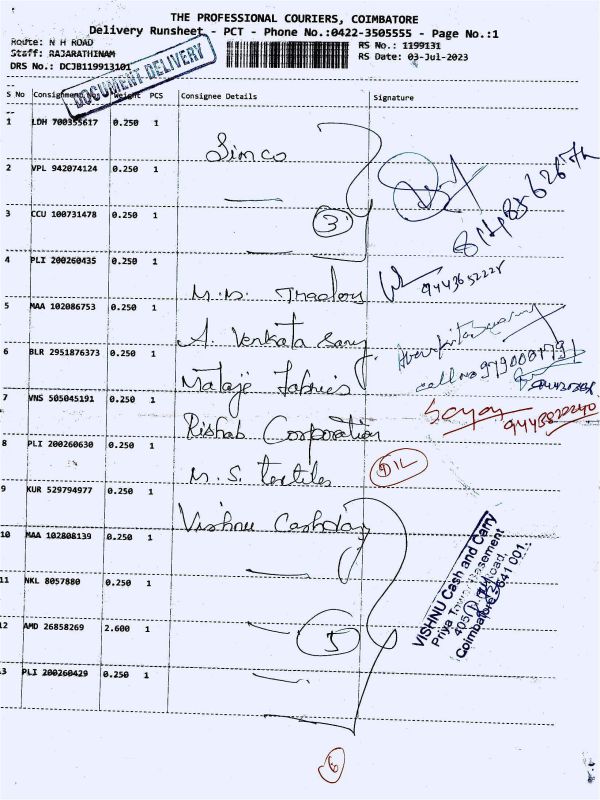 THE PROFESSIONAL COURIERS, COIMBATORE
Delivery Runsheet - PCT - Phone No.:0422-3505555 - Page No.:1
Route: N H ROAD
RS No.: 1199131
Staff: RAJARATHINAM
RS Date: 03-Jul-2023
DRS No.: DCJB119913101
DOCUMENT DELIVERY
S No Consignment No Weight PCS Consignee Details Signature
1 LDH 700355617 0.250 1
Simco
2 VPL 942074124 0.250 1
3 CCU 100731478 0.250 1
3
4 PLI 200260435 0.250 1
M.M. Traders
9443652228
5 MAA 102086753 0.250 1
A. Venkata Samy
6 BLR 2951876373 0.250 1
Mataje Fabrics
call no
7 VNS 505045191 0.250 1
Rishab Corporation
8 PLI 200260630 0.250 1
M.S. Textiles
D/L
9 KUR 529794977 0.250 1
Vishnu Cash&Carry
10 MAA 102808139 0.250 1
11 NKL 8057880 0.250 1
12 AMD 26858269 2.600 1
5
13 PLI 200260429 0.250 1
VISHNU Cash and Carry
Priya Town Basement
405 Road,
Coimbatore-641 001.
6